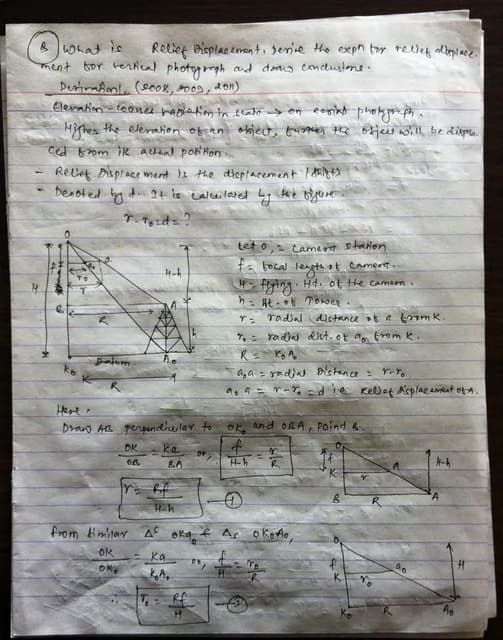 8) What is Relief Displacement. Derive the expn for relief displace-
ment for vertical photograph and draw conclusions.
Derivation:- (2008, 2009, 2011)
Elevation - causes variation in scale → on aerial photograph.
Higher the elevation of an object, further the object will be displa
ced from its actual position.
- Relief Displacement is the displacement (shift)
- Denoted by d. It is calculated by the figure.
r - r₀ = d = ?
O
f
a
r₀
r
H
H-h
B
A
R
h
Datum
K₀
A₀
R
Let O, = Camera station
f = focal length of camera.
H = flying. Ht. of the camera.
h = Ht. of Tower.
r = radial distance of a from k.
r₀ = radial dist. of a₀ from k.
R = K₀A₀
a₀a = radial Distance = r-r₀
a₀a = r - r₀ = d i.e. Relief displacement of A.
Here,
Draw AB perpendicular to OK₀ and OBA, Point B.
OK/OB = Ka/BA or, f/H-h = r/R
r = Rf/H-h — ①
O
f
K
r
a
H-h
B
R
A
from Similar Δs oka₀ & Δs OK₀A₀,
OK/OK₀ = Ka/K₀A₀ or, f/H = r₀/R
∴ r₀ = Rf/H — ②
O
f
K
r₀
a₀
H
K₀
R
A₀